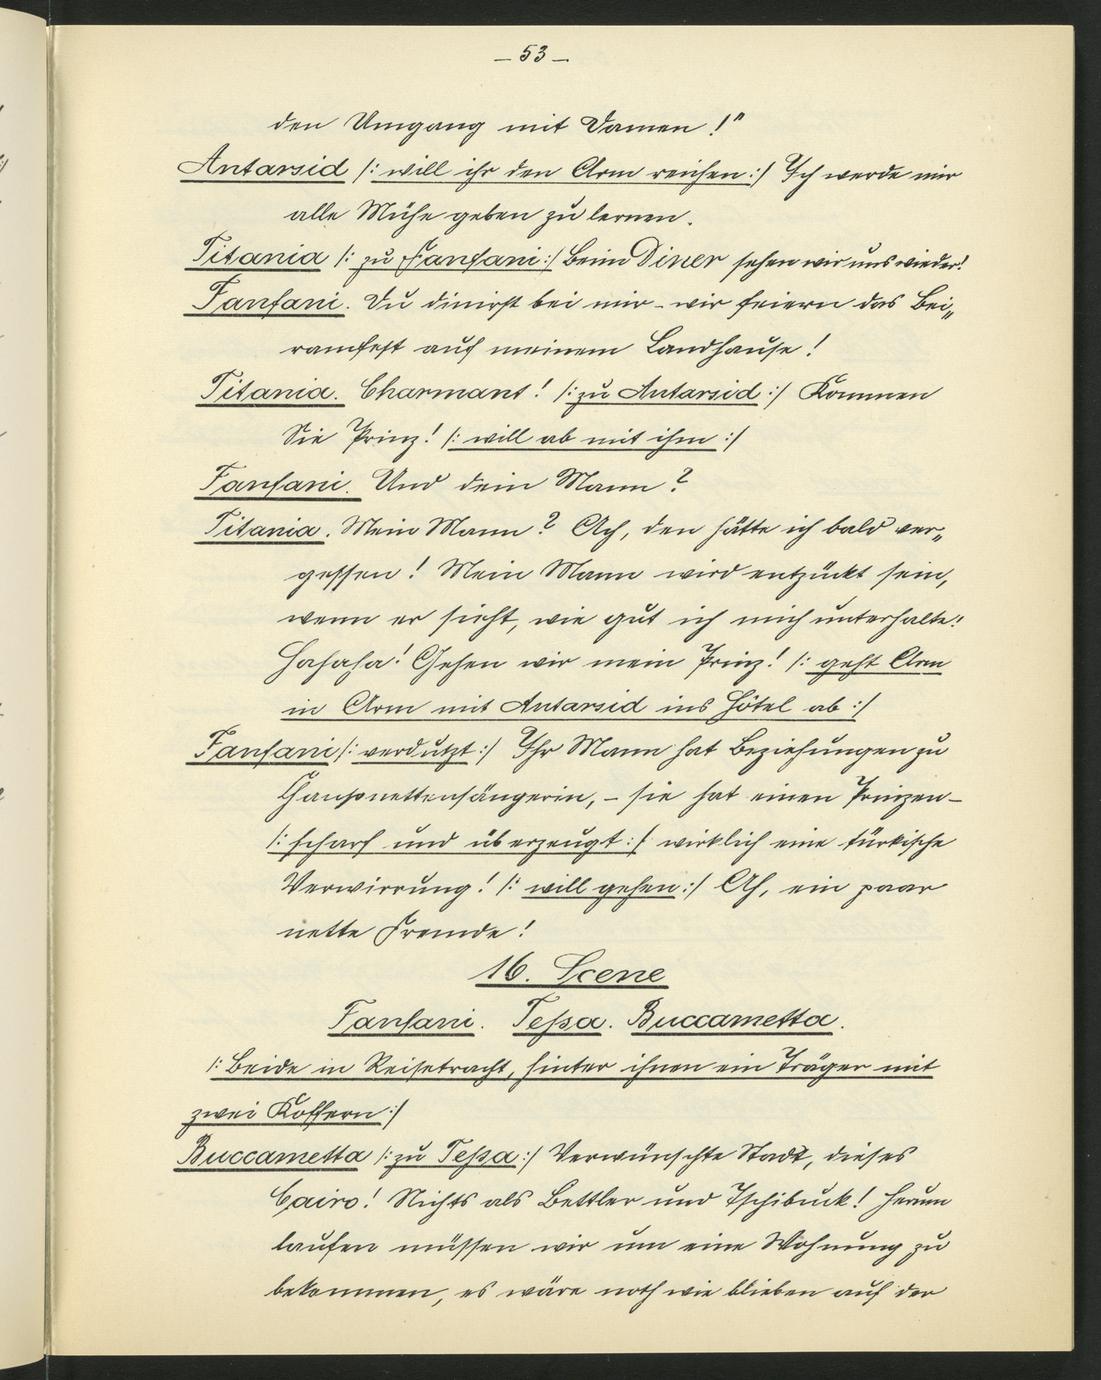 – 53 –
den Umgang mit Damen!"
Antarsid /: will ihr den Arm reichen :/ Ich werde mir
alle Mühe geben zu lernen.
Titania /: zu Fanfani :/ Beim Diner sehen wir uns wieder!
Fanfani. Du dinirst bei mir – wir feiern das Bei„
ramfest auf meinem Landhause!
Titania. Charmant! /: zu Antarsid :/ Kommen
Sie Prinz! /: will ab mit ihm :/
Fanfani. Und dein Mann?
Titania. Mein Mann? Ach, den hätte ich bald ver„
gessen! Mein Mann wird entzückt sein,
wenn er sieht, wie gut ich mich unterhalte!
Hahaha! Gehen wir mein Prinz! /: geht Arm
in Arm mit Antarsid ins Hôtel ab :/
Fanfani /: verdutzt :/ Ihr Mann hat Beziehungen zu
Chansonettensängerin, – sie hat einen Prinzen –
/: scharf und überzeugt :/ wirklich eine türkische
Verwirrung! /: will gehen :/ Ah, ein paar
nette Fremde!
16. Scene
Fanfani. Teßa. Buccametta.
/: Beide in Reisetracht, hinter ihnen ein Träger mit
zwei Koffern :/
Buccametta /: zu Teßa :/ Verwünschte Stadt, dieses
Cairo! Nichts als Bettler und Tschibuck! Herum
laufen müssen wir um eine Wohnung zu
bekommen, es wäre noth wie blieben auf der